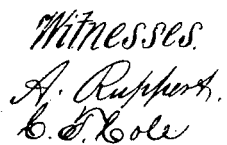 Witnesses.
A. Ruppert.
C. T. Cole